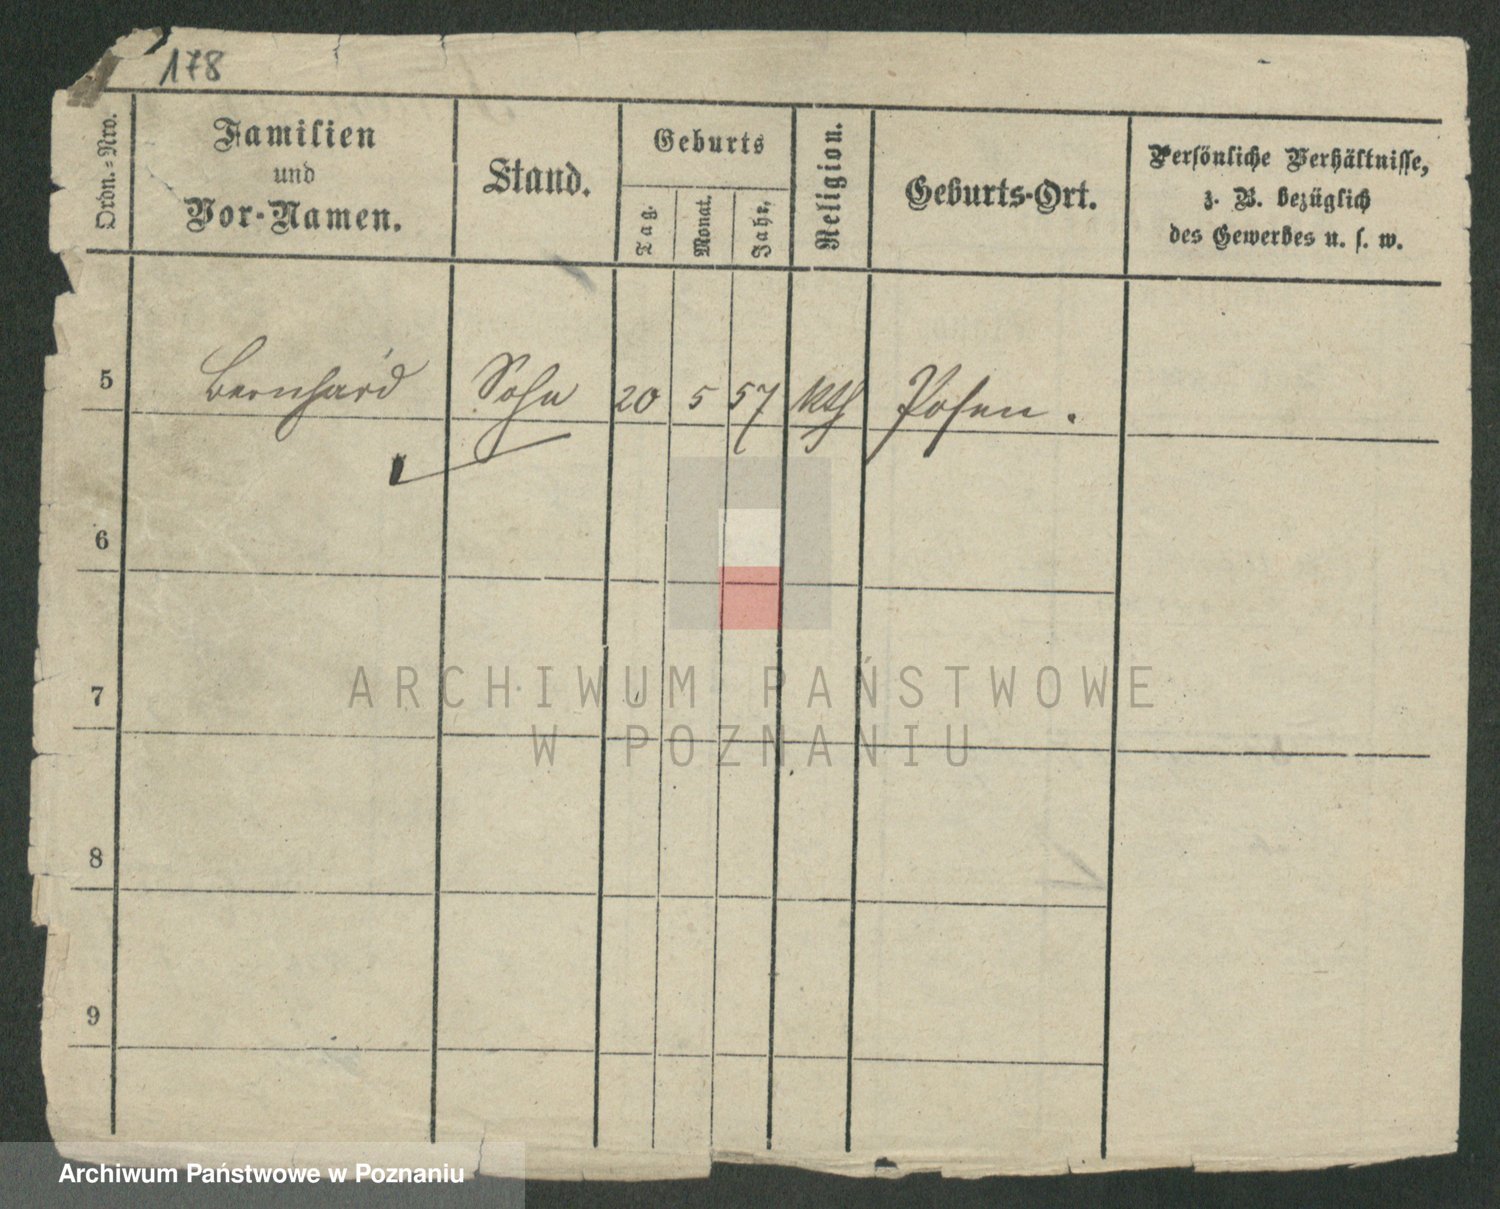 178
Ordn.-Nro.
Familien
und
Vor-Namen.
Stand.
Geburts
Tag.
Monat.
Jahr.
Religion.
Geburts-Ort.
Persönliche Verhältnisse,
z. B. bezüglich
des Gewerbes u. s. w.
5 Bernhard Sohn 20 5 57 kth Posen.
6
7
ARCHIWUM PAŃSTWOWE
W POZNANIU
8
9
Archiwum Państwowe w Poznaniu